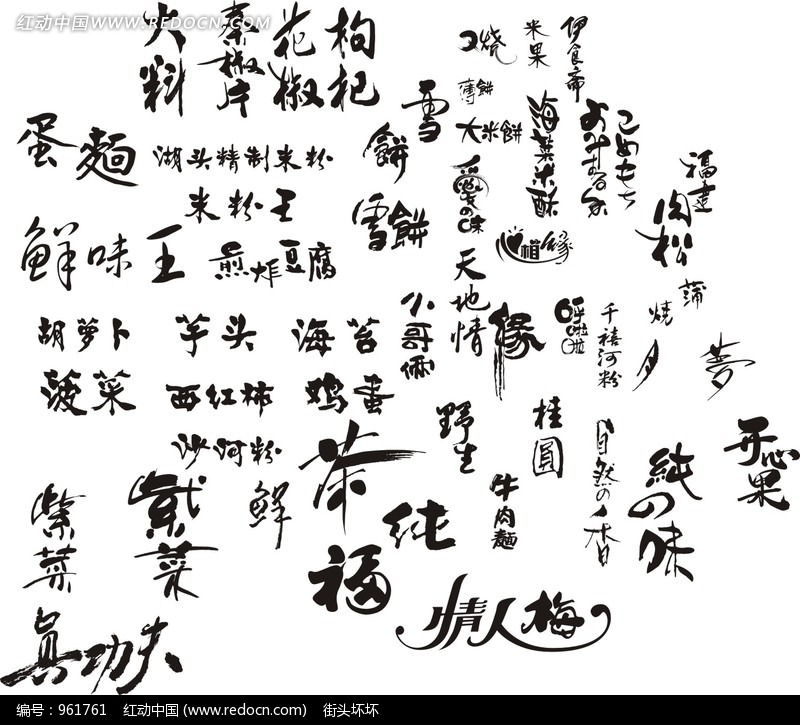 红动中国 WWW.REDOCN.COM
大料
秦椒片
花椒
枸杞
蛋麵
湖头精制米粉
米粉王
鲜味王
煎炸豆腐
雪餅
雪餅
烧
米果
薄餅
大米餅
愛の味
海菜米酥
こめもち
福建
肉松
相缘
天地情
胡萝卜
芋头
海苔
小哥俩
緣
呼啦啦
千禧河粉
蒲
燒
夕
夢
菠菜
西红柿
鸡蛋
沙河粉
茶
野生
桂圓
自然の香
純の味
开心果
紫菜
紫菜
鲜
纯
牛肉麵
福
情人梅
真功夫
编号：961761 红动中国 (www.redocn.com) 街头坏坏